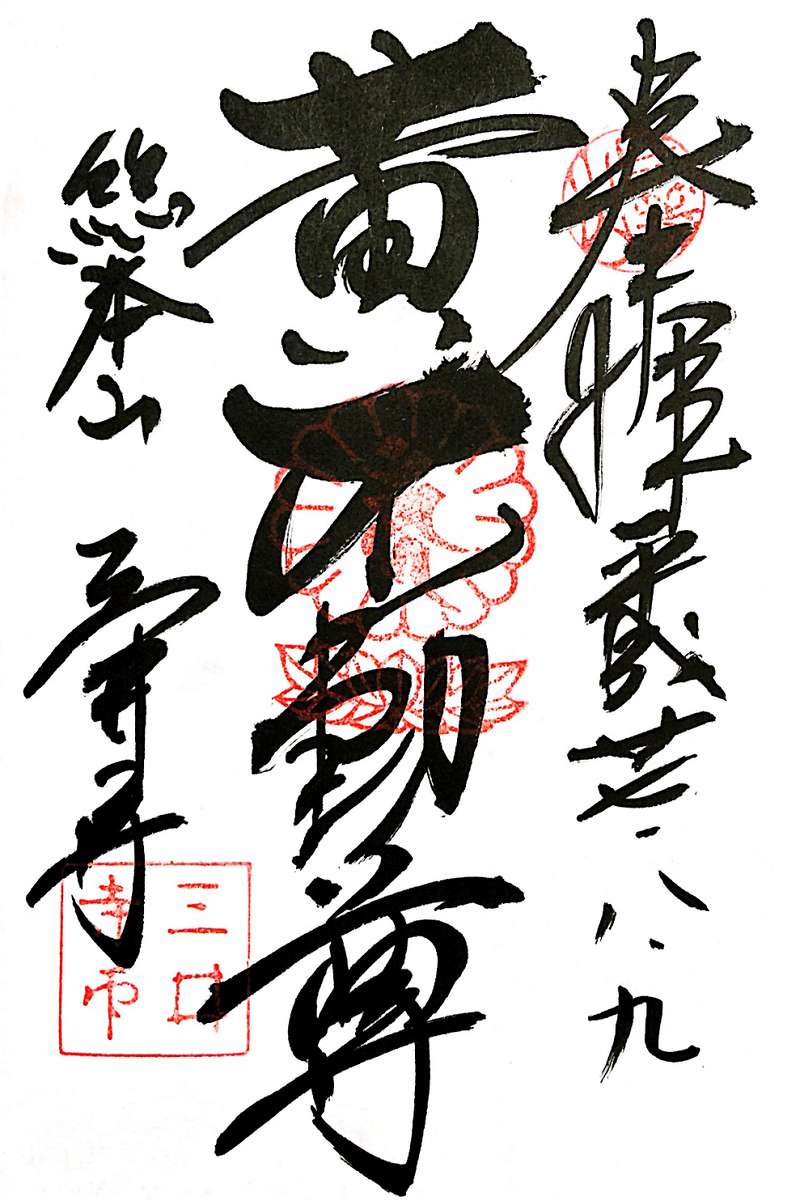 奉拝 平成廿七、八、九
黄不動尊
総本山 三井寺
三井寺印